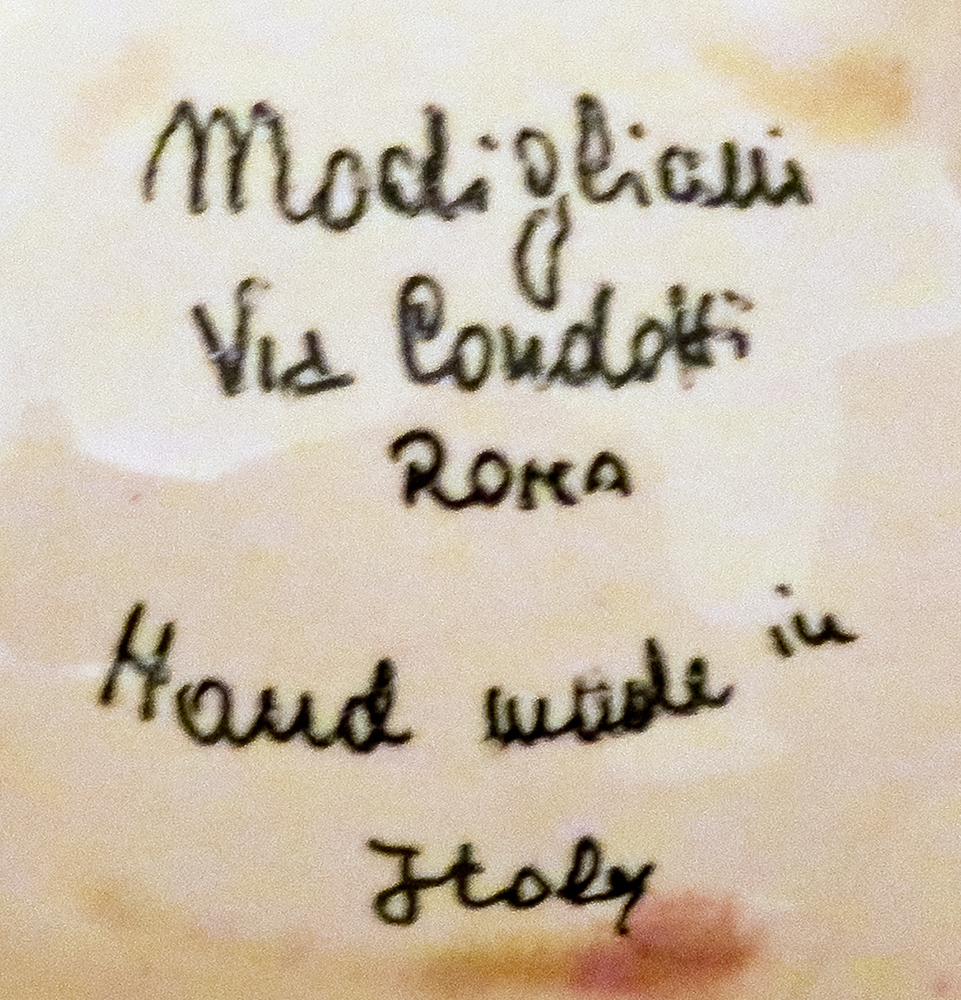 Modigliani
Via Condotti
ROMA
Hand made in
Italy